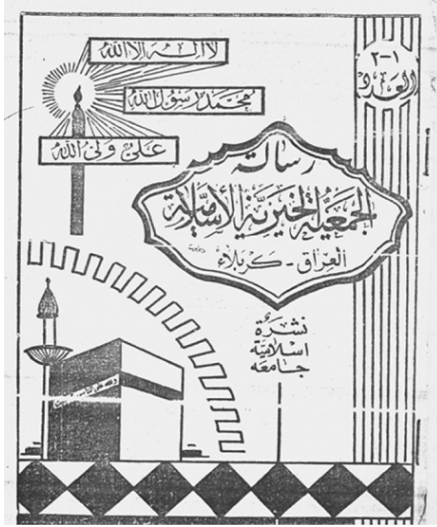 لا اله الا الله
محمد رسول الله
علي ولي الله
١-٢
العدد
رسالة
الجمعية الخيرية الإسلامية
العراق - كربلاء
نشرة
اسلامية
جامعه